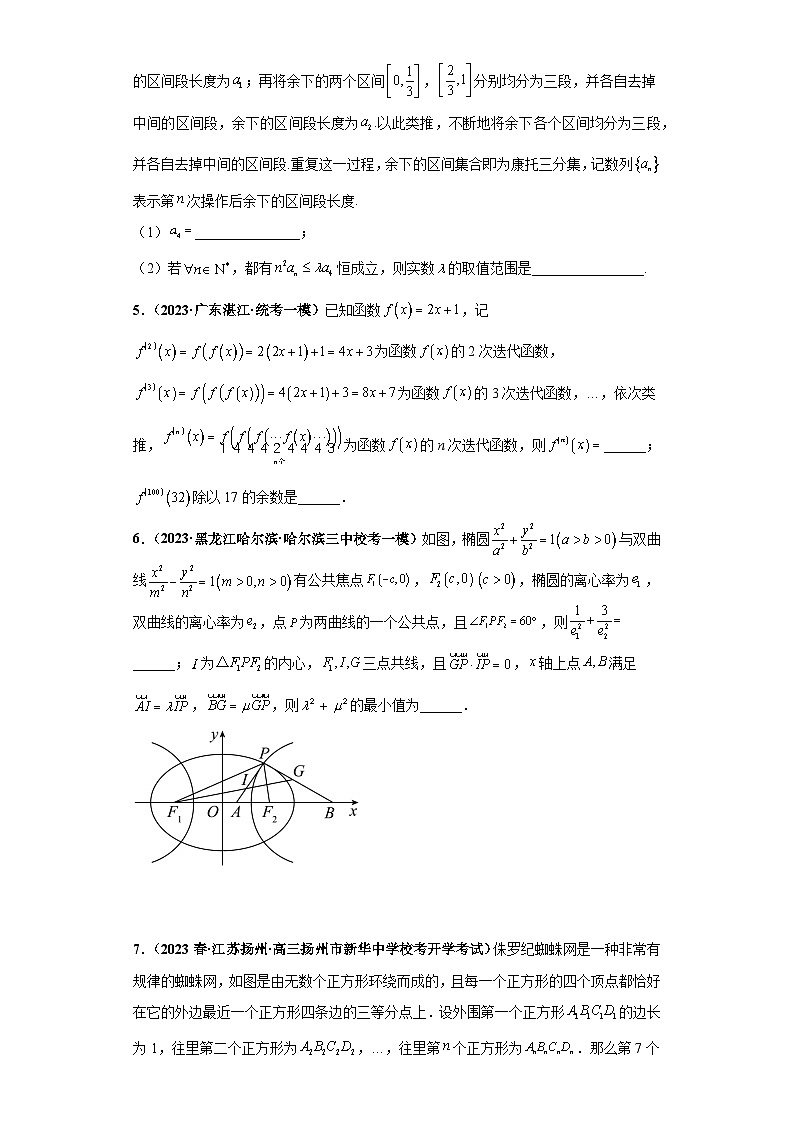 的区间段长度为a₁；再将余下的两个区间[0,1/3]，[2/3,1]分别均分为三段，并各自去掉
中间的区间段，余下的区间段长度为a₂.以此类推，不断地将余下各个区间均分为三段，
并各自去掉中间的区间段.重复这一过程，余下的区间集合即为康托三分集，记数列{aₙ}
表示第n次操作后余下的区间段长度.
（1）a₄=______________；
（2）若∀n∈N*，都有n²aₙ≤λa₄恒成立，则实数λ的取值范围是_______________.
5．（2023·广东湛江·统考一模）已知函数f(x)=2x+1，记
f⁽²⁾(x)=f(f(x))=2(2x+1)+1=4x+3为函数f(x)的2次迭代函数，
f⁽³⁾(x)=f(f(f(x)))=4(2x+1)+3=8x+7为函数f(x)的3次迭代函数，…，依次类
推，f⁽ⁿ⁾(x)=f(f(f(⋯f(x)⋯)))为函数f(x)的n次迭代函数，则f⁽ⁿ⁾(x)=______；
1 4 4 4 2 4 4 4 3
n个
f⁽¹⁰⁰⁾(32)除以17的余数是______．
6．（2023·黑龙江哈尔滨·哈尔滨三中校考一模）如图，椭圆x²/a²+y²/b²=1(a>b>0)与双曲
线x²/m²−y²/n²=1(m>0,n>0)有公共焦点F₁(−c,0)，F₂(c,0)(c>0)，椭圆的离心率为e₁，
双曲线的离心率为e₂，点P为两曲线的一个公共点，且∠F₁PF₂=60°，则1/e₁²+3/e₂²=
______；I为△F₁PF₂的内心，F₁,I,G三点共线，且GP·IP=0，x轴上点A,B满足
AI=λIP，BG=μGP，则λ²+μ²的最小值为______．
y
P
I
G
F₁ O A F₂ B x
7．（2023春·江苏扬州·高三扬州市新华中学校考开学考试）侏罗纪蜘蛛网是一种非常有
规律的蜘蛛网，如图是由无数个正方形环绕而成的，且每一个正方形的四个顶点都恰好
在它的外边最近一个正方形四条边的三等分点上．设外围第一个正方形A₁B₁C₁D₁的边长
为1，往里第二个正方形为A₂B₂C₂D₂，…，往里第n个正方形为AₙBₙCₙDₙ．那么第7个